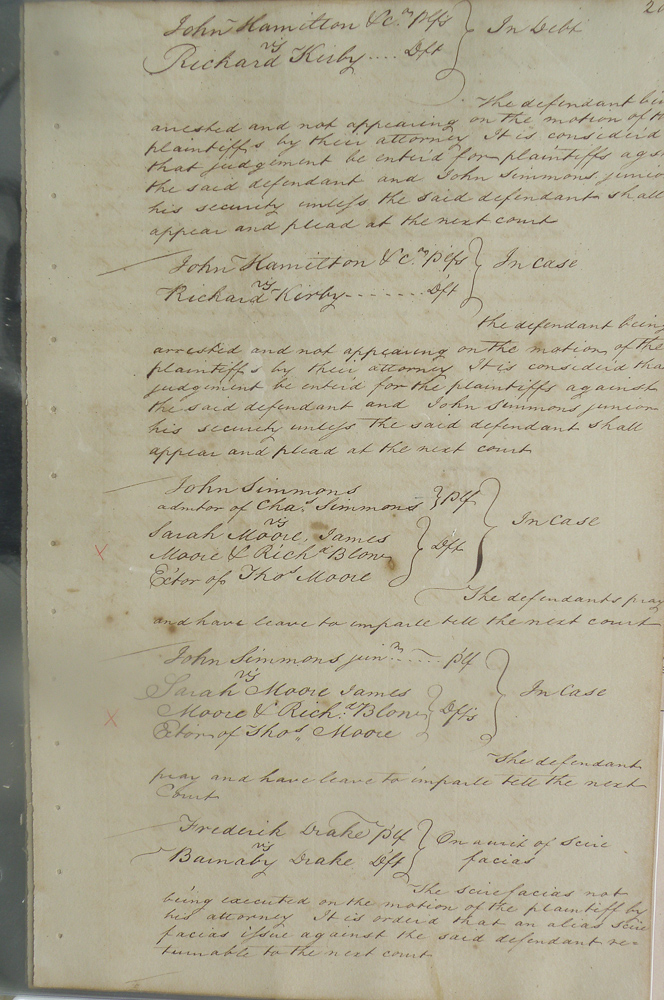 20
John Hamilton & c.ⁿ Plfs } In Debt
vs
Richard Kirby .... Dft
The defendant bei
arrested and not appearing on the motion of th
plaintiffs by their attorney It is considerd
that judgement be enterd for plaintiffs agst
the said defendant and John Simmons junior
his security unless the said defendant shall
appear and plead at the next court
John Hamilton & c.ⁿ Plfs } In Case
vs
Richard Kirby ....... Dft
the defendant being
arrested and not appearing on the motion of the
plaintiffs by their attorney It is considerd tha
judgement be enterd for the plaintiffs against
the said defendant and John Simmons junior
his security unless the said defendant shall
appear and plead at the next court
John Simmons
admtor of Chas. Simmons } Plf
vs
Sarah Moore, James
Moore & Richd Blow } Dft } In Case
Ector of Thos Moore
The defendants pray
and have leave to imparle tell the next court
John Simmons junr ...... Plf
vs
Sarah Moore James
Moore & Rich.d Blow } Dfts } In Case
Ector of Thos. Moore
The defendant
pray and have leave to imparle tell the next
Court
Frederik Drake Plf } On a writ of Scire
vs
Barnaby Drake Dft } facias
The scirefacias not
being executed on the motion of the plaintiff by
his attorney It is orderd that an alias Scire
facias issue against the said defendant re-
turnable to the next court